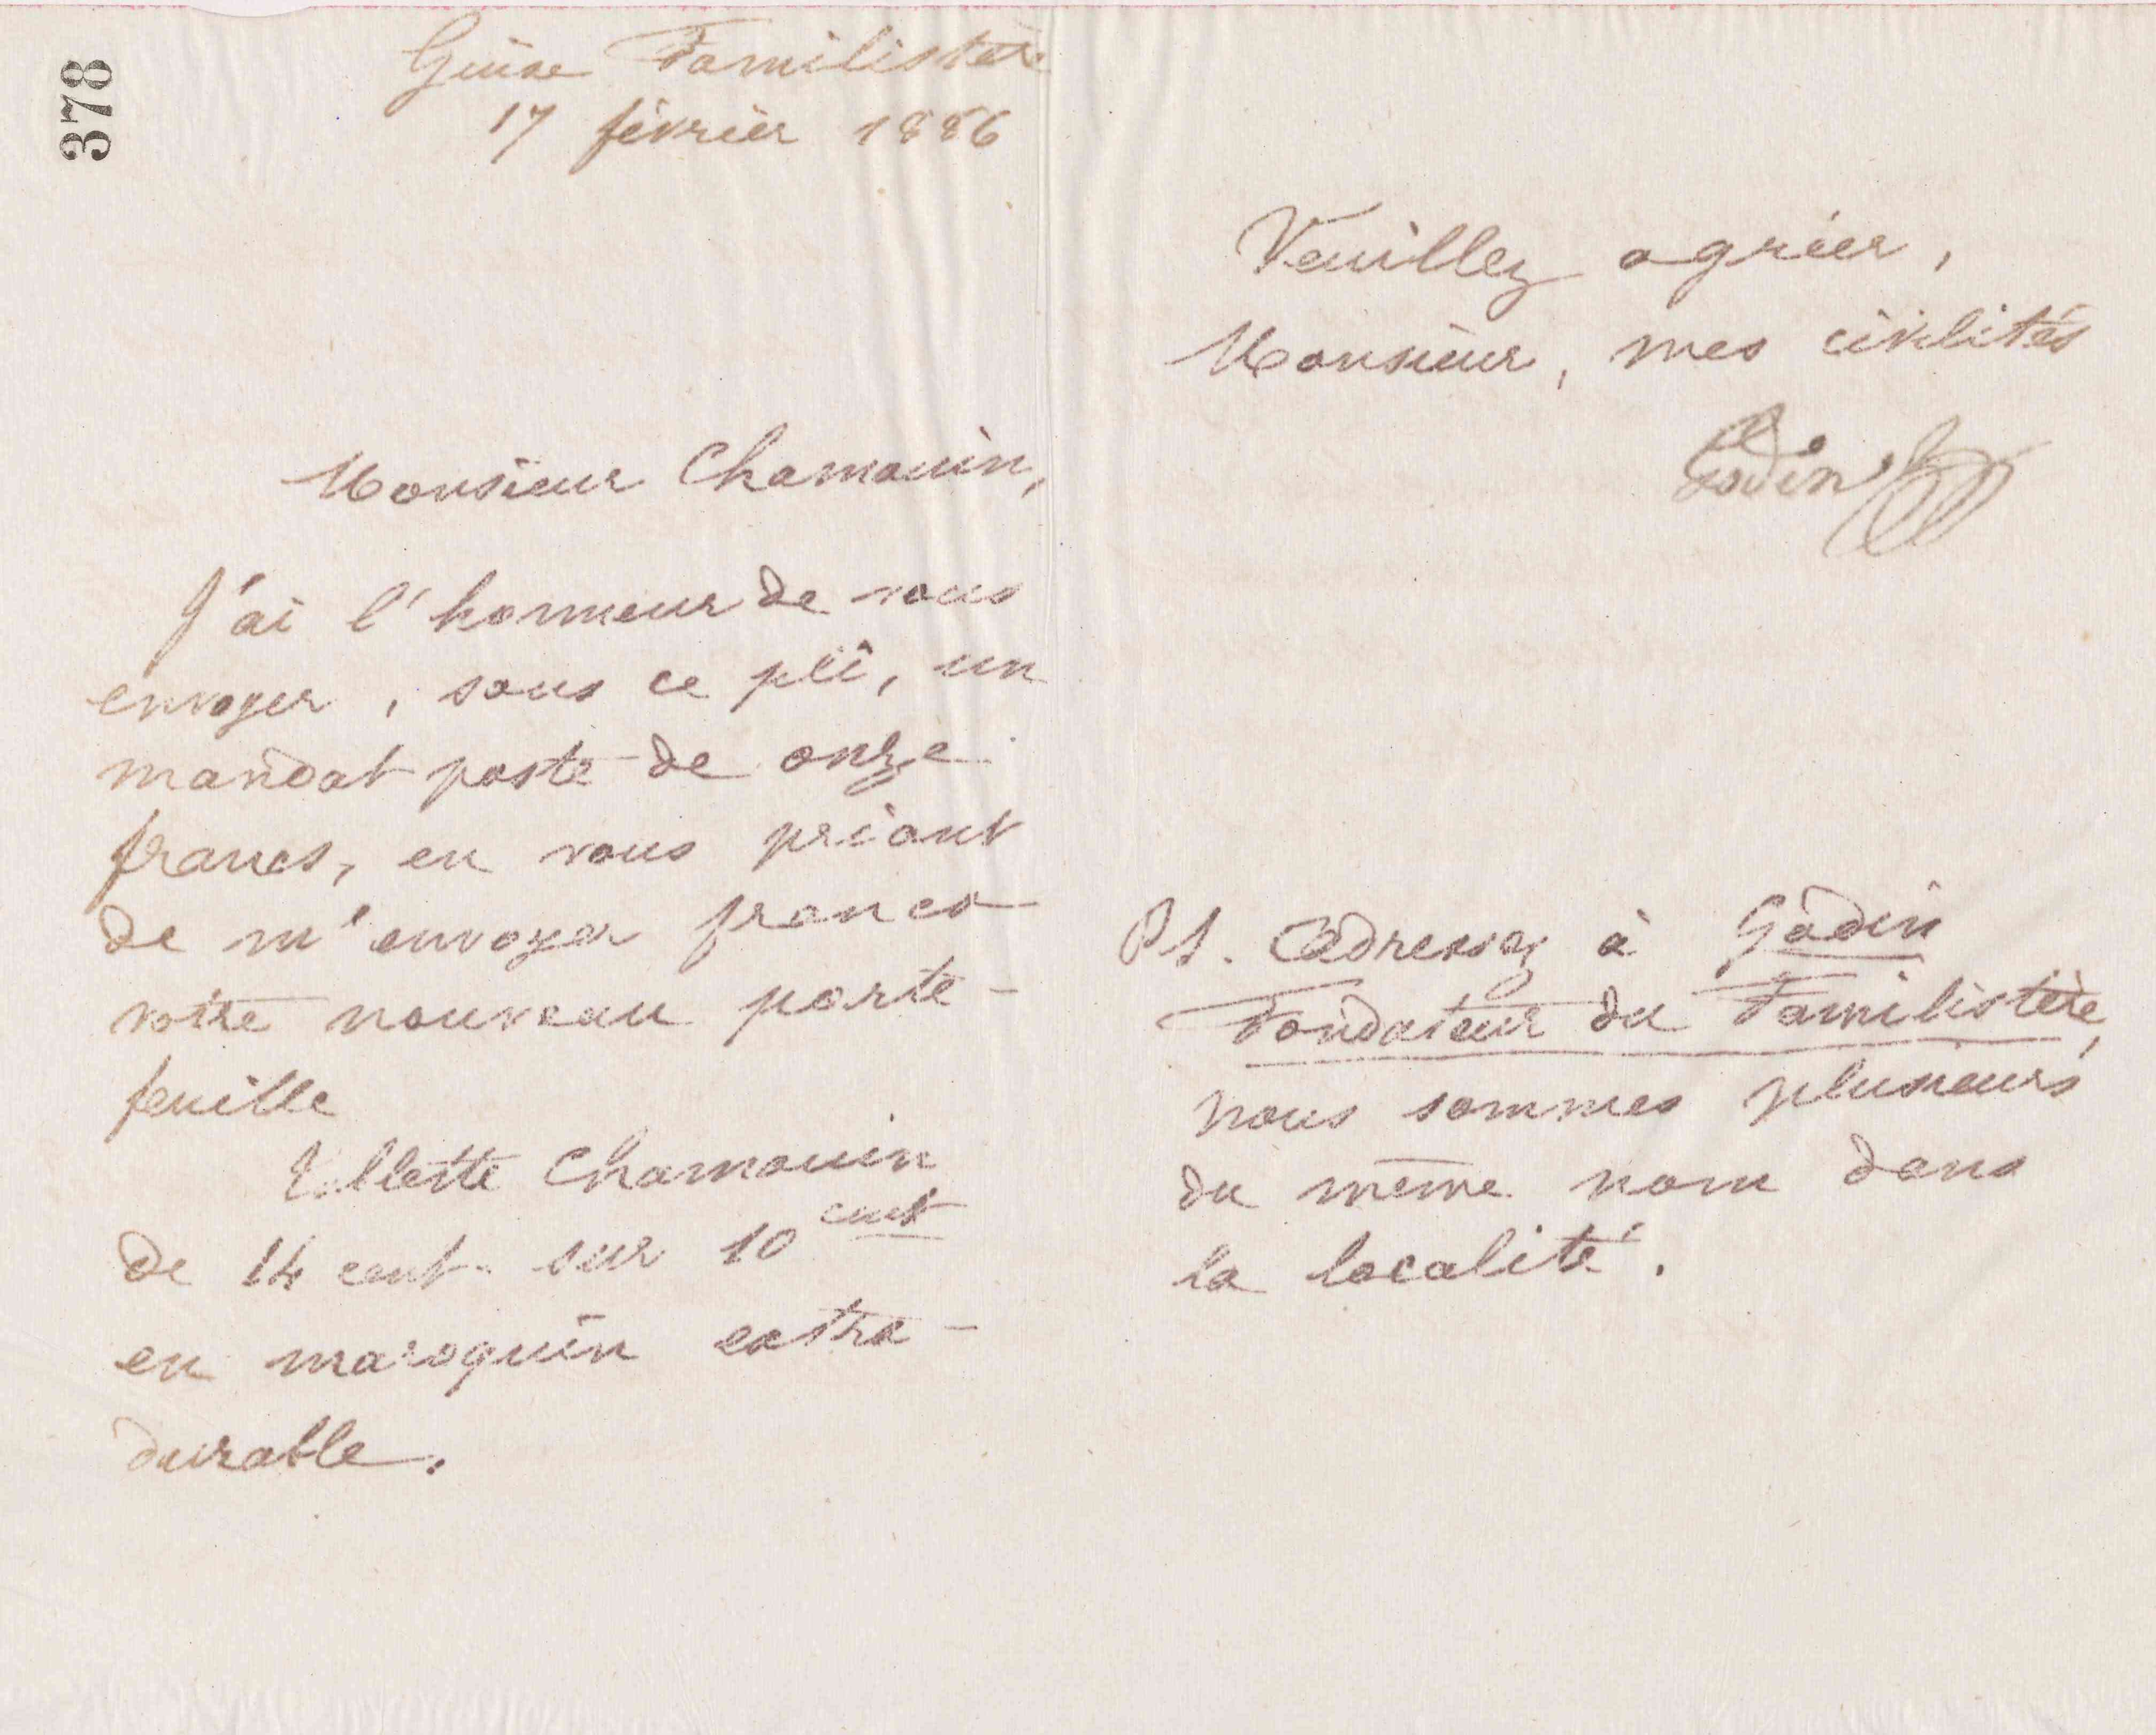 378
Guise Familistère
17 février 1886
Monsieur Chamouin,
J'ai l'honneur de vous
envoyer, sous ce pli, un
mandat poste de onze
francs, en vous priant
de m'envoyer franco
votre nouveau porte-
feuille
Chamouin
de 14 cent. sur 10 cent
en maroquin extra-
durable.
Veuillez agréer,
Monsieur, mes civilités
Godin
PS. Adressez à Godin
Fondateur du Familistère,
nous sommes plusieurs
du même nom dans
la localité.